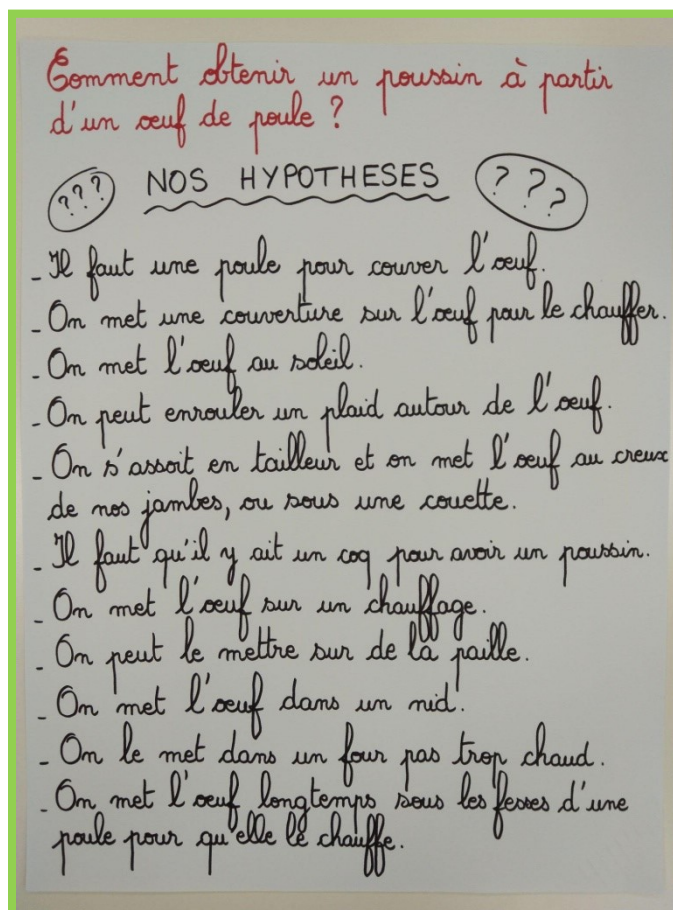 Comment obtenir un poussin à partir
d'un œuf de poule ?
??? NOS HYPOTHESES ???
- Il faut une poule pour couver l'œuf.
- On met une couverture sur l'œuf pour le chauffer.
- On met l'œuf au soleil.
- On peut enrouler un plaid autour de l'œuf.
- On s'assoit en tailleur et on met l'œuf au creux
de nos jambes, ou sous une couette.
- Il faut qu'il y ait un coq pour avoir un poussin.
- On met l'œuf sur un chauffage.
- On peut le mettre sur de la paille.
- On met l'œuf dans un nid.
- On le met dans un four pas trop chaud.
- On met l'œuf longtemps sous les fesses d'une
poule pour qu'elle le chauffe.